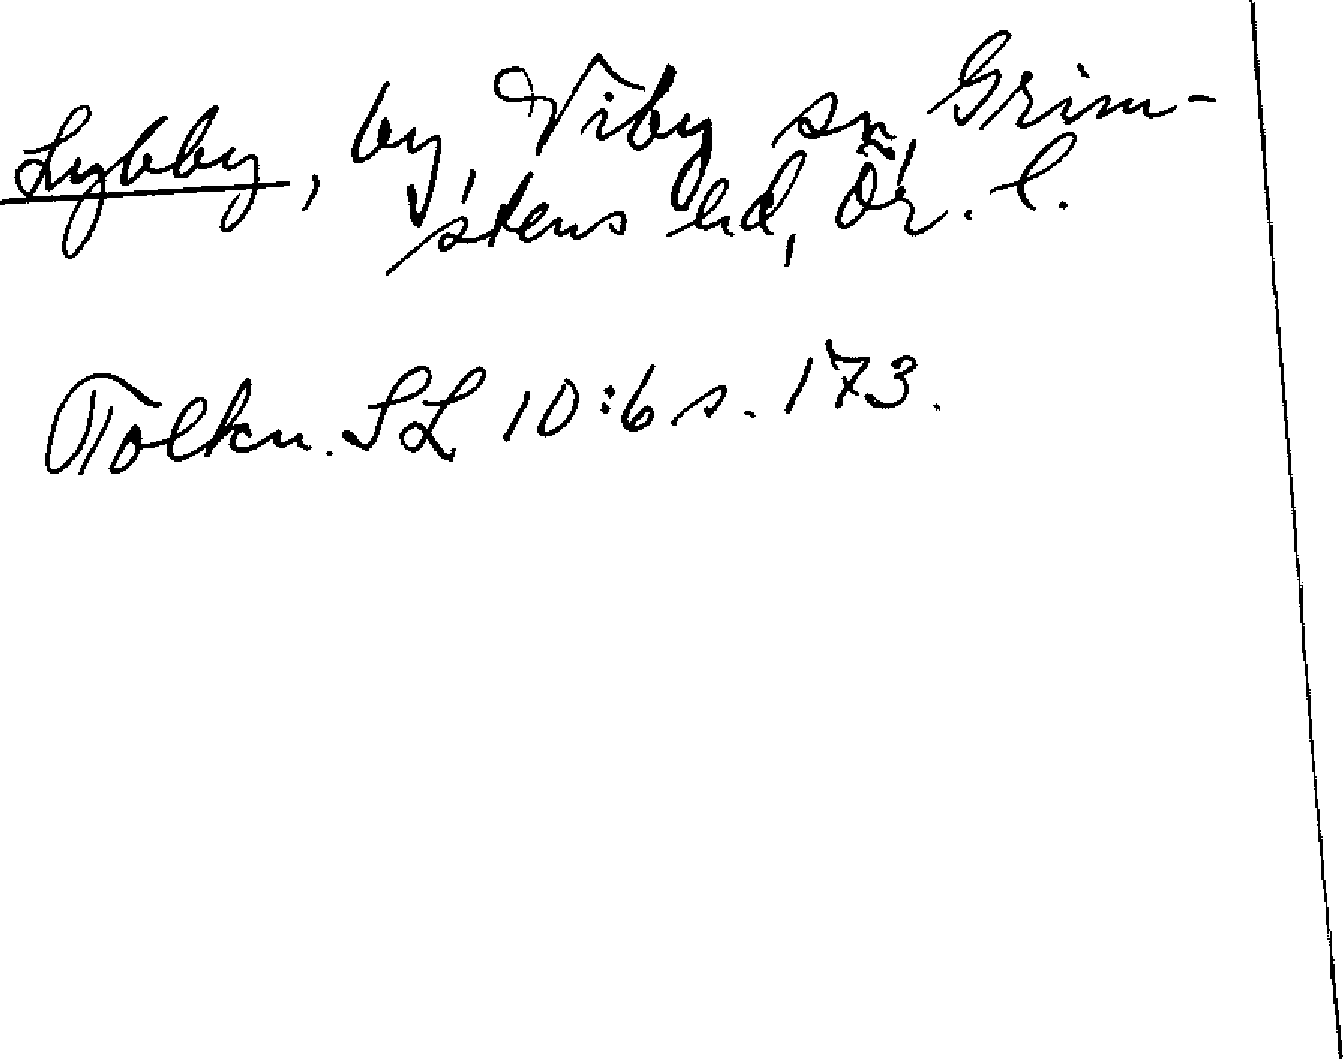 Lybby, by, Viby sn, Grim-
stens hd, Ör. l.
Tolkn. SL 10:6 s. 173.